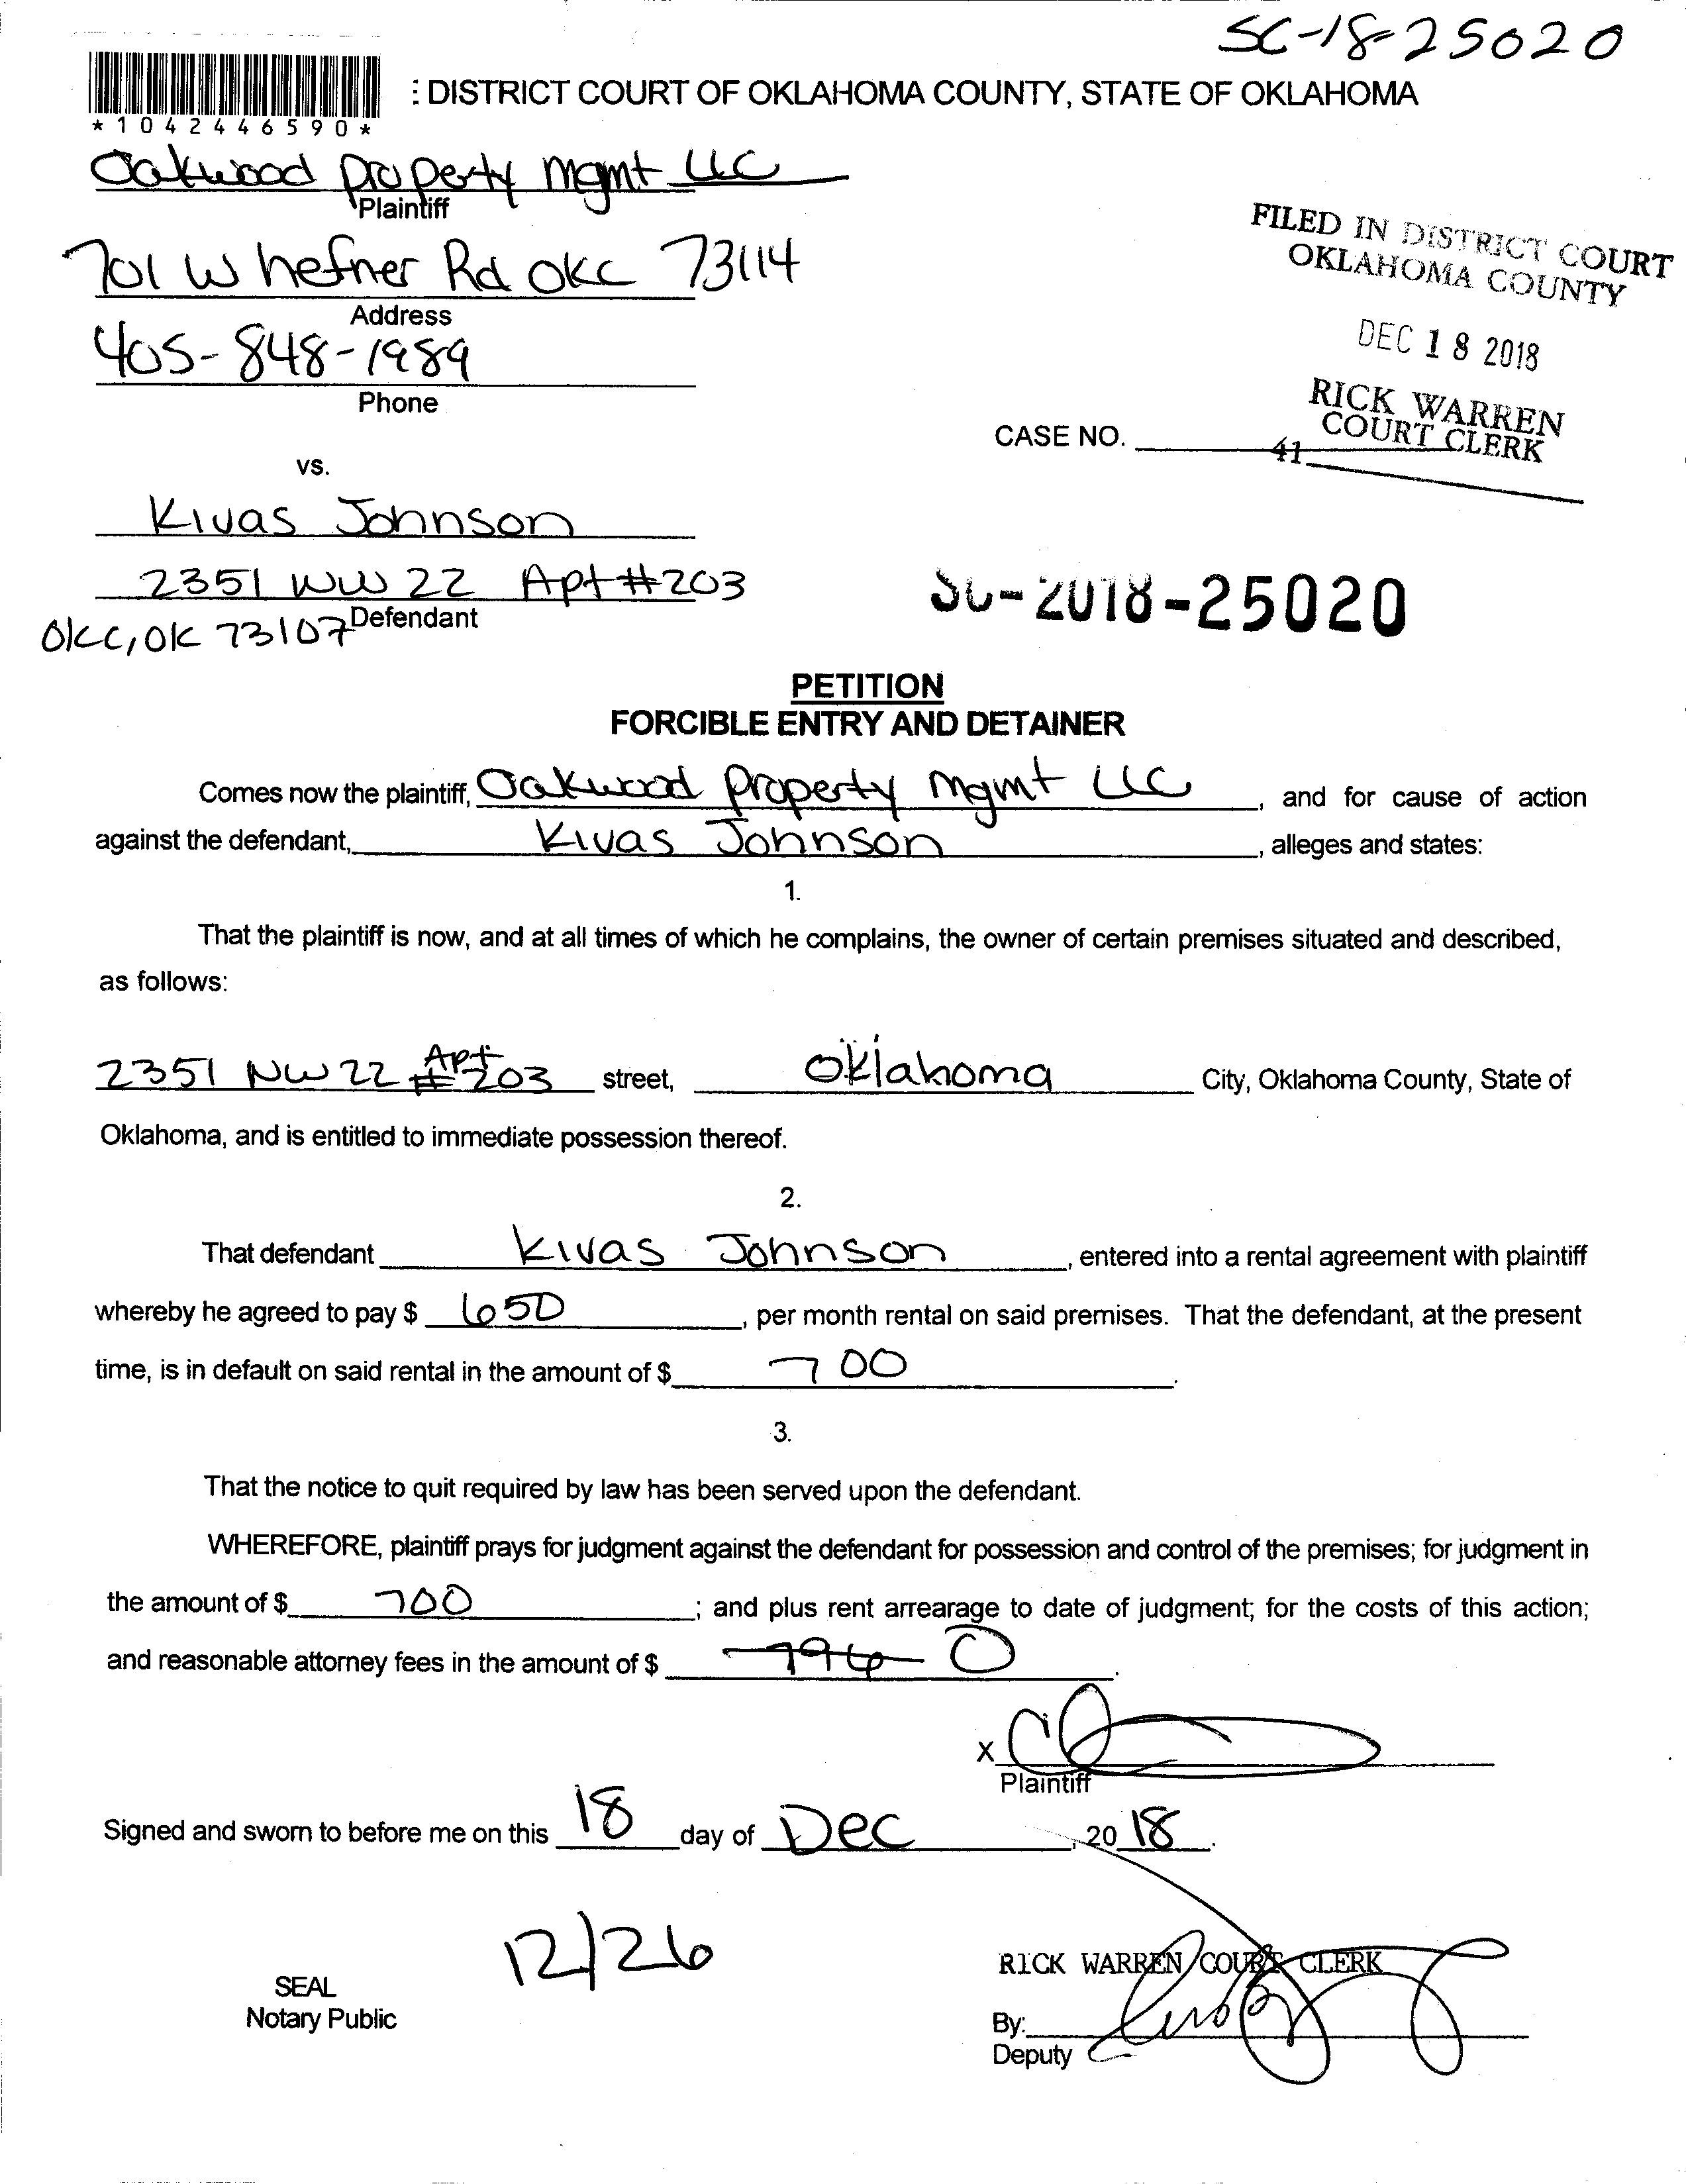 SC-18-25020
: DISTRICT COURT OF OKLAHOMA COUNTY, STATE OF OKLAHOMA
*1042446590*
Oakwood Property Mgmt LLC
Plaintiff
701 W hefner Rd OKC 73114
Address
405-848-1989
Phone
FILED IN DISTRICT COURT
OKLAHOMA COUNTY
DEC 18 2018
RICK WARREN
COURT CLERK
CASE NO.
41
vs.
Kivas Johnson
2351 NW 22 Apt #203
Defendant
OKC, OK 73107
SC-2018-25020
PETITION
FORCIBLE ENTRY AND DETAINER
Comes now the plaintiff, Oakwood Property Mgmt LLC, and for cause of action
against the defendant, Kivas Johnson, alleges and states:
1.
That the plaintiff is now, and at all times of which he complains, the owner of certain premises situated and described,
as follows:
2351 NW 22 Apt #203 street, Oklahoma City, Oklahoma County, State of
Oklahoma, and is entitled to immediate possession thereof.
2.
That defendant Kivas Johnson, entered into a rental agreement with plaintiff
whereby he agreed to pay $ 650, per month rental on said premises. That the defendant, at the present
time, is in default on said rental in the amount of $ 700.
3.
That the notice to quit required by law has been served upon the defendant.
WHEREFORE, plaintiff prays for judgment against the defendant for possession and control of the premises; for judgment in
the amount of $ 700; and plus rent arrearage to date of judgment; for the costs of this action;
and reasonable attorney fees in the amount of $ 796 0.
X
Plaintiff
Signed and sworn to before me on this 18 day of Dec, 20 18.
12/26
SEAL
Notary Public
RICK WARREN COURT CLERK
By:
Deputy